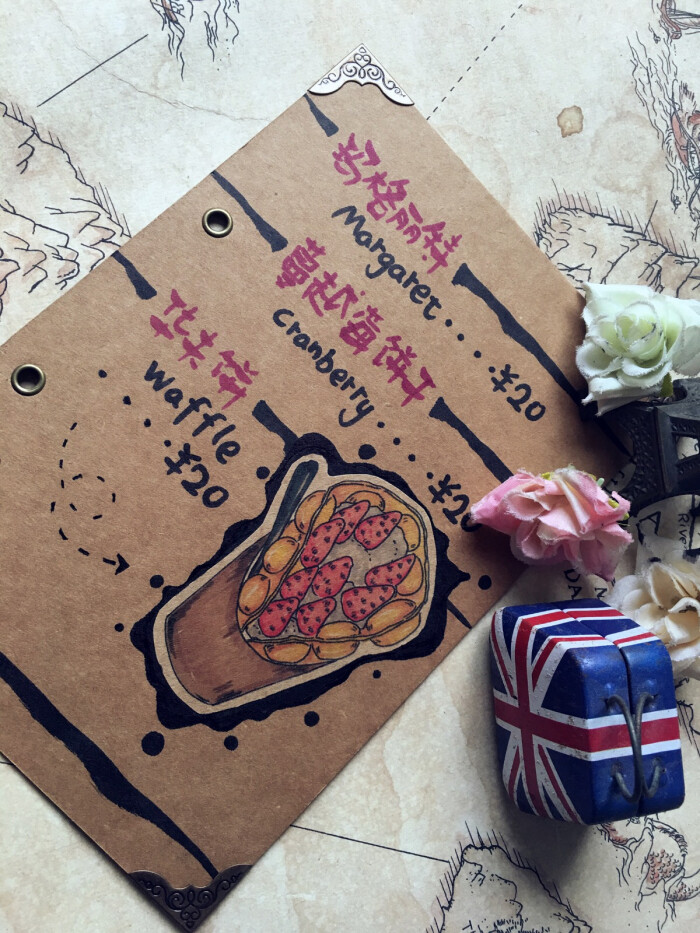 玛格丽特
Margaret.... ¥20
蔓越莓饼干
Cranberry....
华夫饼
Waffle
..¥20